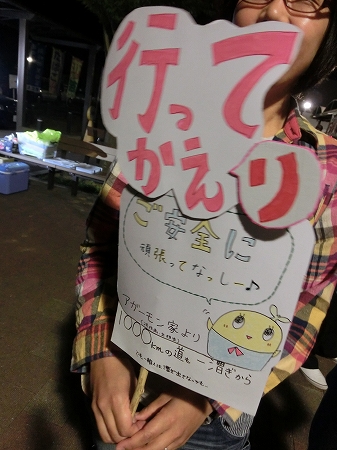 行って
かえり
ご安全に
頑張ってなっしー♪
アガーモン家より
1000kmの道も一漕ぎから